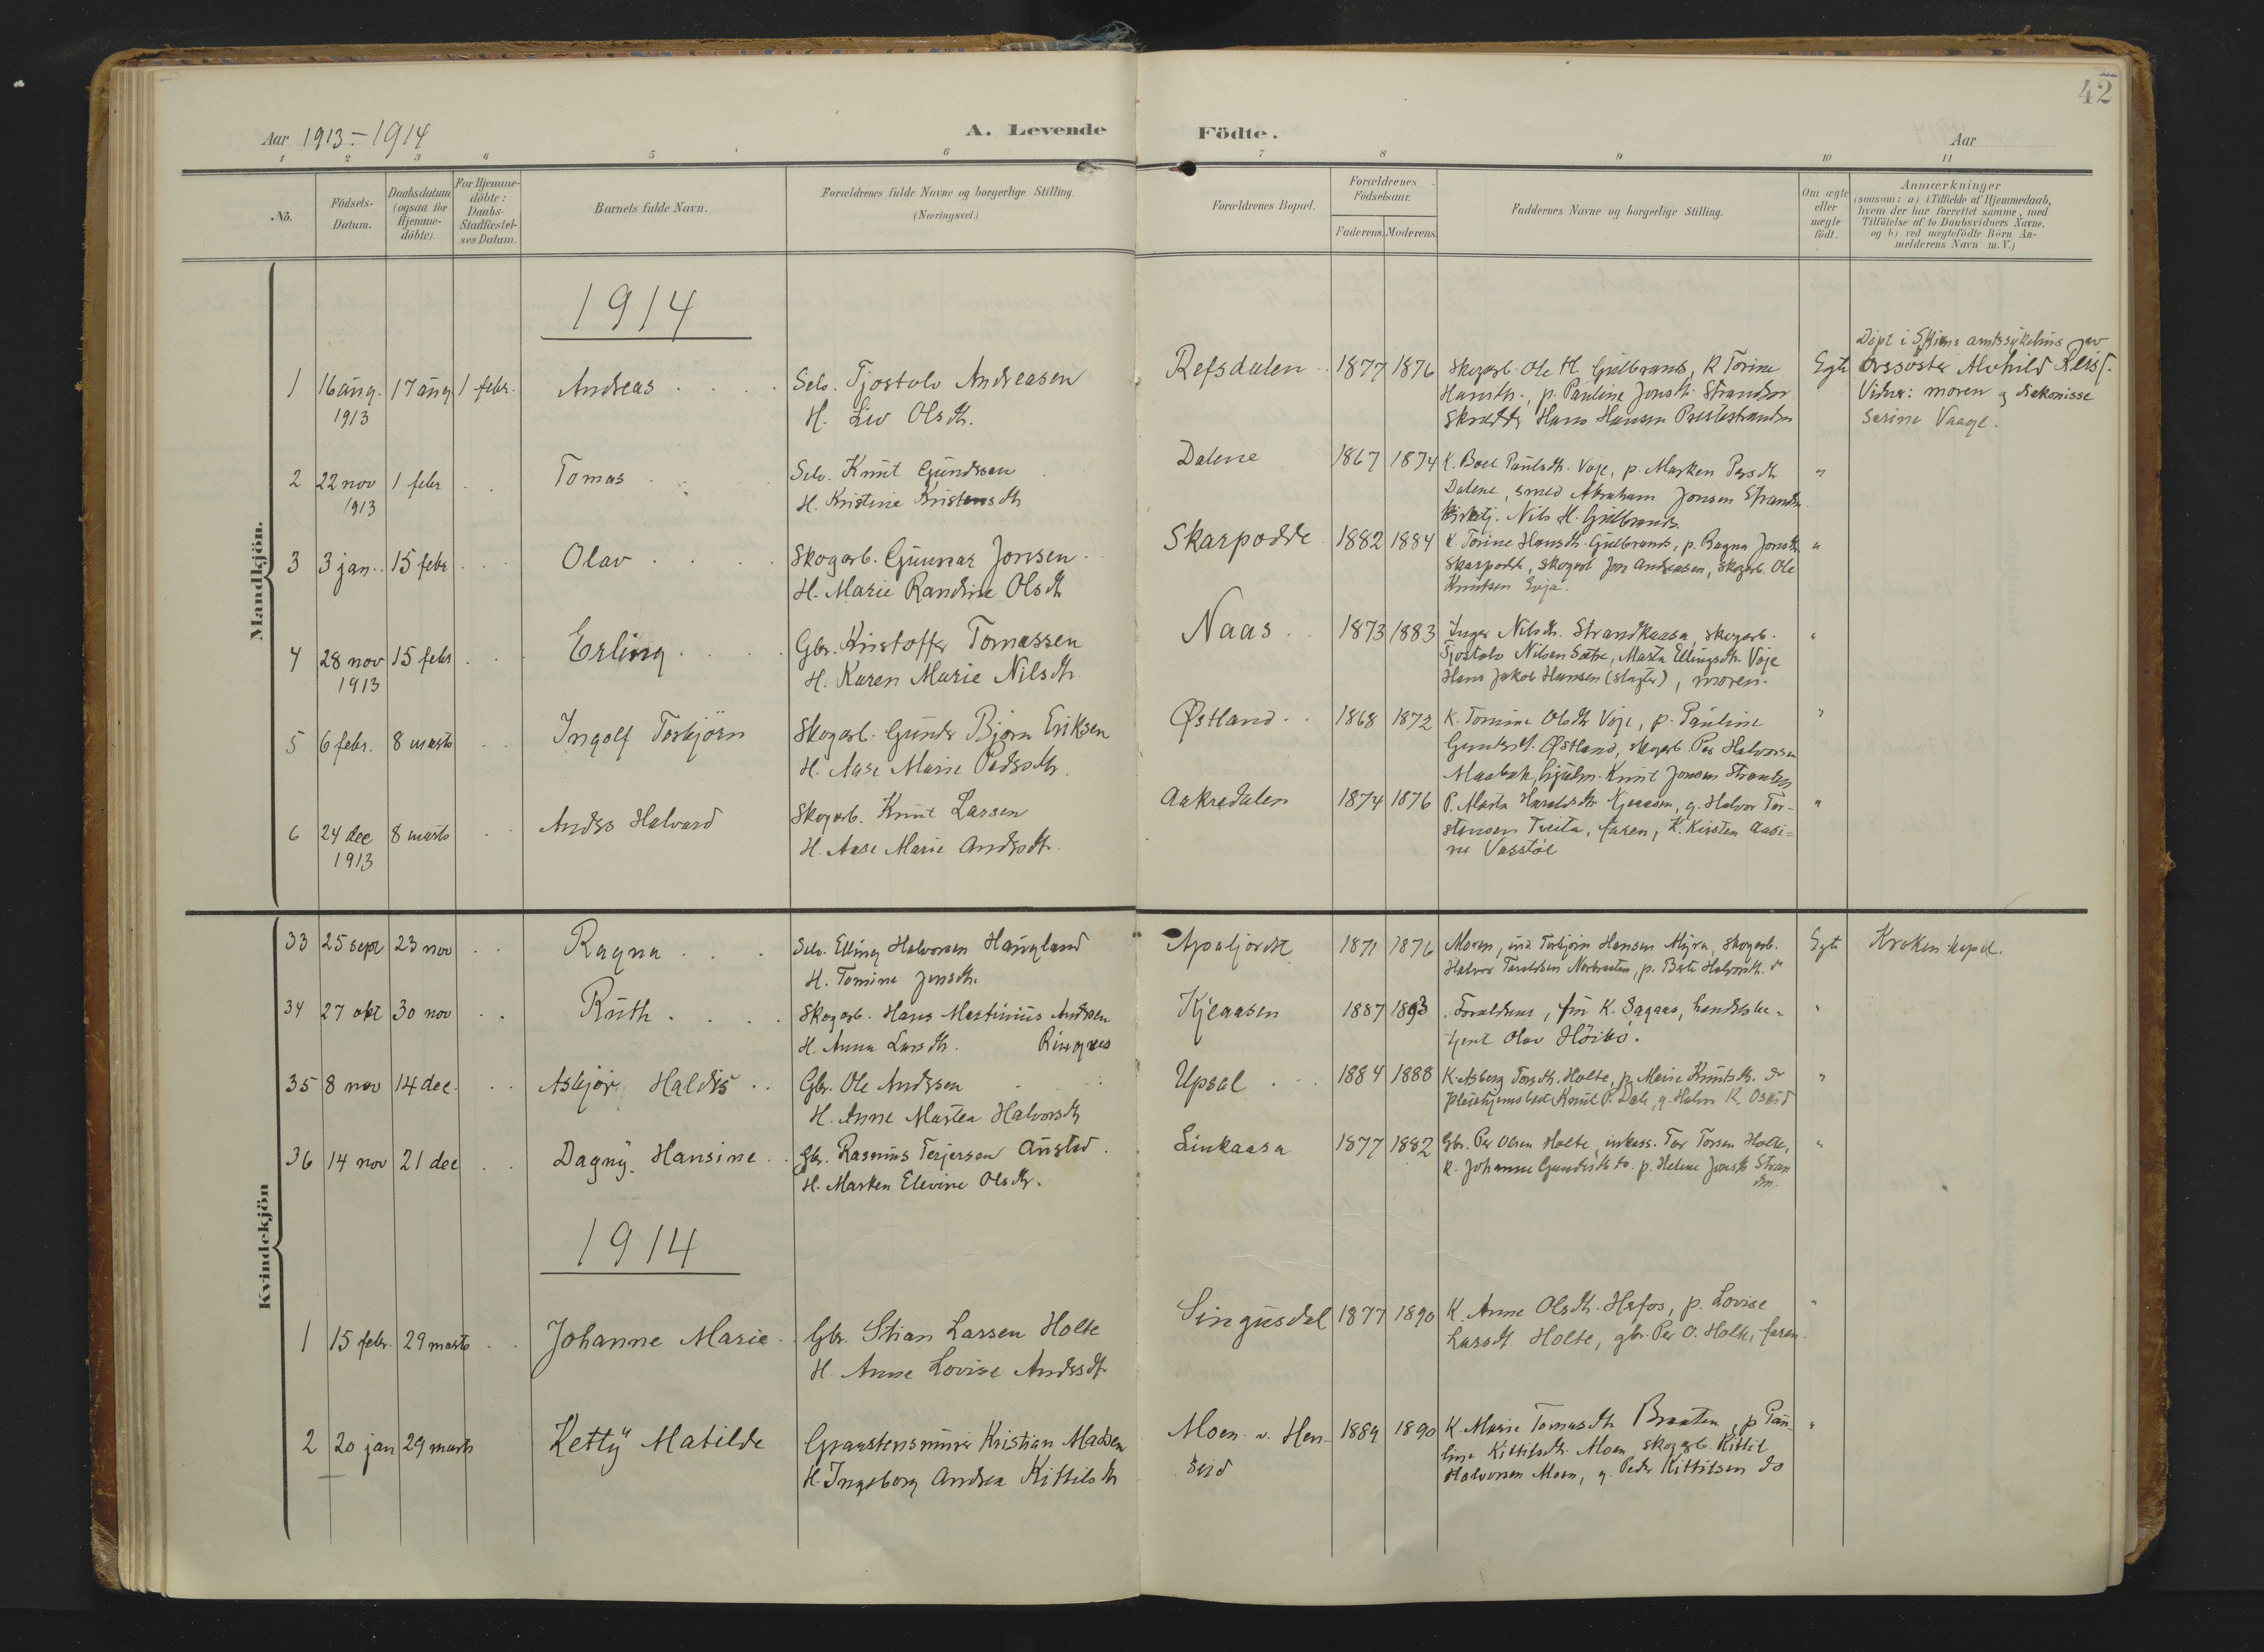 42
Aar 1913-1914
A. Levende Födte.
Aar
1 2 3 4 5 6 7 8 9 10 11
No.
Födsels-Datum.
Daabsdatum (ogsaa for Hjemme-döbte).
For Hjemme-döbte: Daabs-Stadfæstel-ses Datum.
Barnets fulde Navn.
Forældrenes fulde Navne og borgerlige Stilling.
(Næringsvei.)
Forældrenes Bopæl.
Forældrenes Födselsaar.
Faderens. Moderens.
Faddernes Navne og borgerlige Stilling.
Om ægte eller uægte födt.
Anmærkninger
(saasom: a) i Tilfælde af Hjemmedaab,
hvem der har forrettet samme, med
Tilföielse af to Daabsvidners Navne.
og b) ved uægtefödte Börn An-
melderens Navn m.V.)
Mandkjön.
1914
1 16 aug. 1913 17 aug 1 febr. Andreas
Selv. Tjostolv Andreasen
H. Liv Olsdtr.
Refsdalen 1877 1876
Skogarb. Ole H. Gulbrands, K Torine
Hansdtr., p. Pauline Jonsdtr. Stranden
Skrædder Hans Hansen Prestestranden
Egte
Døpt i Skiens amtssykehus av
øvssøster Alvhild Reis
Vidner: moren og diakonisse
Serine Vaage.
2 22 nov 1913 1 febr Tomas
Selv. Knut Gundersen
H. Kristine Kristensdtr
Dalene 1867 1874
K. Boel Paulsdtr. Voje, p. Marken Persdtr
Dalene, smed Abraham Jonsen Stranden.
Kirketj. Nils H. Gulbrands.
"
3 3 jan. 15 febr Olav
Skogarb. Gunnar Jonsen
H. Marie Randine Olsdtr
Skarpodde 1882 1884
K Torine Hansdtr. Gulbrands, p. Ragna Jonsdtr
Skarpodde, skogarb Jon Andreasen, skogarb. Ole
Knutsen Eija.
"
4 28 nov 1913 15 febr Erling
Gbr. Kristoffer Tomassen
H. Karen Marie Nilsdtr.
Naas 1873 1883
Inger Nilsdtr. Strandkaasa, skogarb.
Tjostolv Nilsen Sætre, Marta Ellingsdtr. Voje
Hans Jakob Hansen (slagter), moren.
"
5 6 febr. 8 marts Ingolf Torbjörn
Skogarb. Gunder Bjørn Eriksen
H. Aase Marie Pedersdtr.
Østland 1868 1872
K. Tomine Olsdtr Voje, p. Pauline
Gundersdt. Østland, skogarb Per Halvorsen
Maabæk, Knut Jonsen Stranden
"
6 24 dec 1913 8 marts Anders Halvard
Skogarb. Knut Larsen
H. Aase Marie Andersdtr.
Aakredalen 1874 1876
P. Marta Haraldsdtr Kjeaasen, g. Halvor Tor-
stensen Tveita, faren, K. Kirsten Aasi-
ne Vasstøl
"
Kvindekjön
33 25 sept 23 nov Ragna
Selv. Elling Halvorsen Haugland
H. Tomine Jensdtr.
Apaljordet 1871 1876
Moren, ink Torbjørn Hansen Myra, skogarb.
Halvor Taraldsen Norbraaten, p. Berte Halvorsdt. do
Egte Kroken kapel.
34 27 okt 30 nov Ruth
Skogarb. Hans Martinius Andersen
H. Anna Larsdtr. Ringnes
Kjeaasen 1887 1893
Forældrene, fru K. Dagaas, handelsbe-
tjent Olav Höibö.
"
35 8 nov 14 dec. Asbjör Haldis
Gbr. Ole Andersen
H. Anne Martea Halvorsdtr
Upsal 1884 1888
K. Asberg Torsdtr. Holte, p. Marie Knutsdtr. do
Pleiehjemsbest. Knut P. Dale, g. Halvor K. Oseid
"
36 14 nov 21 dec Dagny Hansine
Gbr. Rasmus Terjersen Austad
H. Marken Elevine Olsdtr.
Linkaasa 1877 1882
Gbr. Per Olsen Holte, inkass. Tor Torsen Holte,
K. Johanne Gundersdtr do. p. Helene Jensdtr Stran
den.
"
1914
1 15 febr. 29 marts Johanne Marie
Gbr. Stian Larsen Holte
H. Anne Lovise Andersdtr
Singusdal 1877 1890
K. Anne Olsdtr. Hefos, p. Lovise
Larsdt. Holte, gbr. Per O. Holte, faren.
"
2 20 jan 29 marts Ketty Matilde
Graastensminer Kristian Madsen
H. Ingeborg Andrea Kittilsdtr
Moen v. Hen-
seid
1889 1890
K. Marie Tomasdtr Braaten, p Pau-
line Kittilsdtr. Moen, skogarb. Kittil
Halvorsen Moen, g. Peder Kittilsen do
"